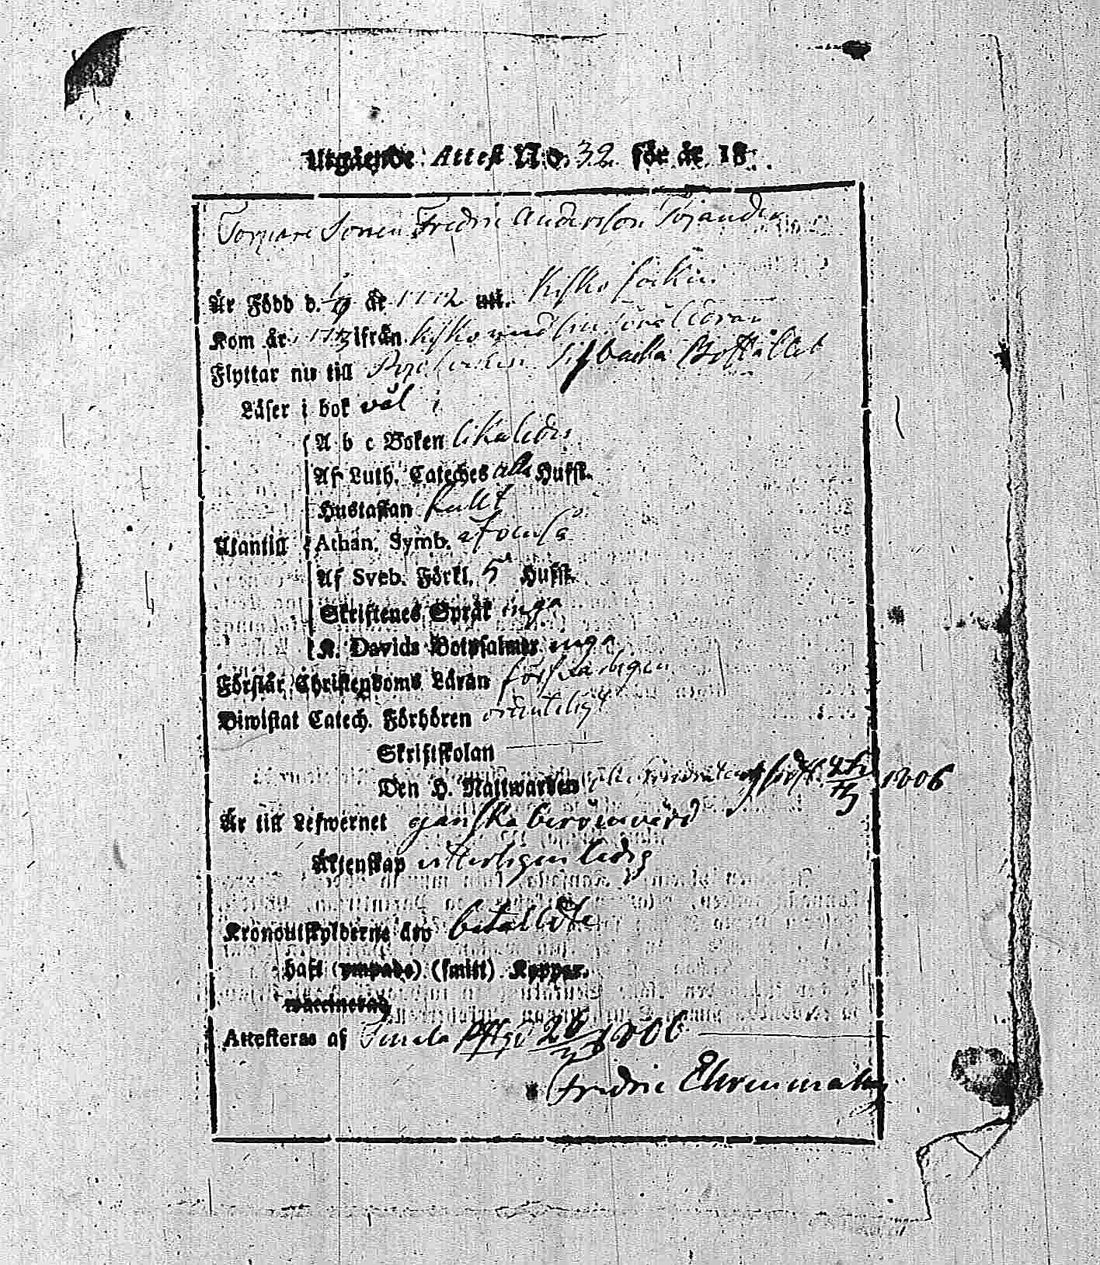 Utgående Attest No. 32 för år 18
Torpare Sonen Fredric Andersson
Är Född d. år
Kom år ifrån Kisko med sina
Flyttar nu till Bostället
Läser i bok väl
A b c Boken likaledes
Af Luth. Cateches alla Hufst.
Hustaflan fullt
Utantill Athan. Symb. äfvenså
Af Sveb. Förkl. 5 Hufst.
Skriftenes Språk inga
K. Davids Botpsalmer inga
Förstår Christendoms Läran förswarligen
Biwistat Catech. Förhören ordenteligt
Skriftskolan
Den H. Nattwarden 1806
Är till Lefwernet ganska berömvärd
Äktenskap vitterligen ledig
Kronoutskylderne äro betallde
haft (ympade) (smitt) Kopper.
waccinerad
Attesteras af 1806
Fredric Ehrenmalm